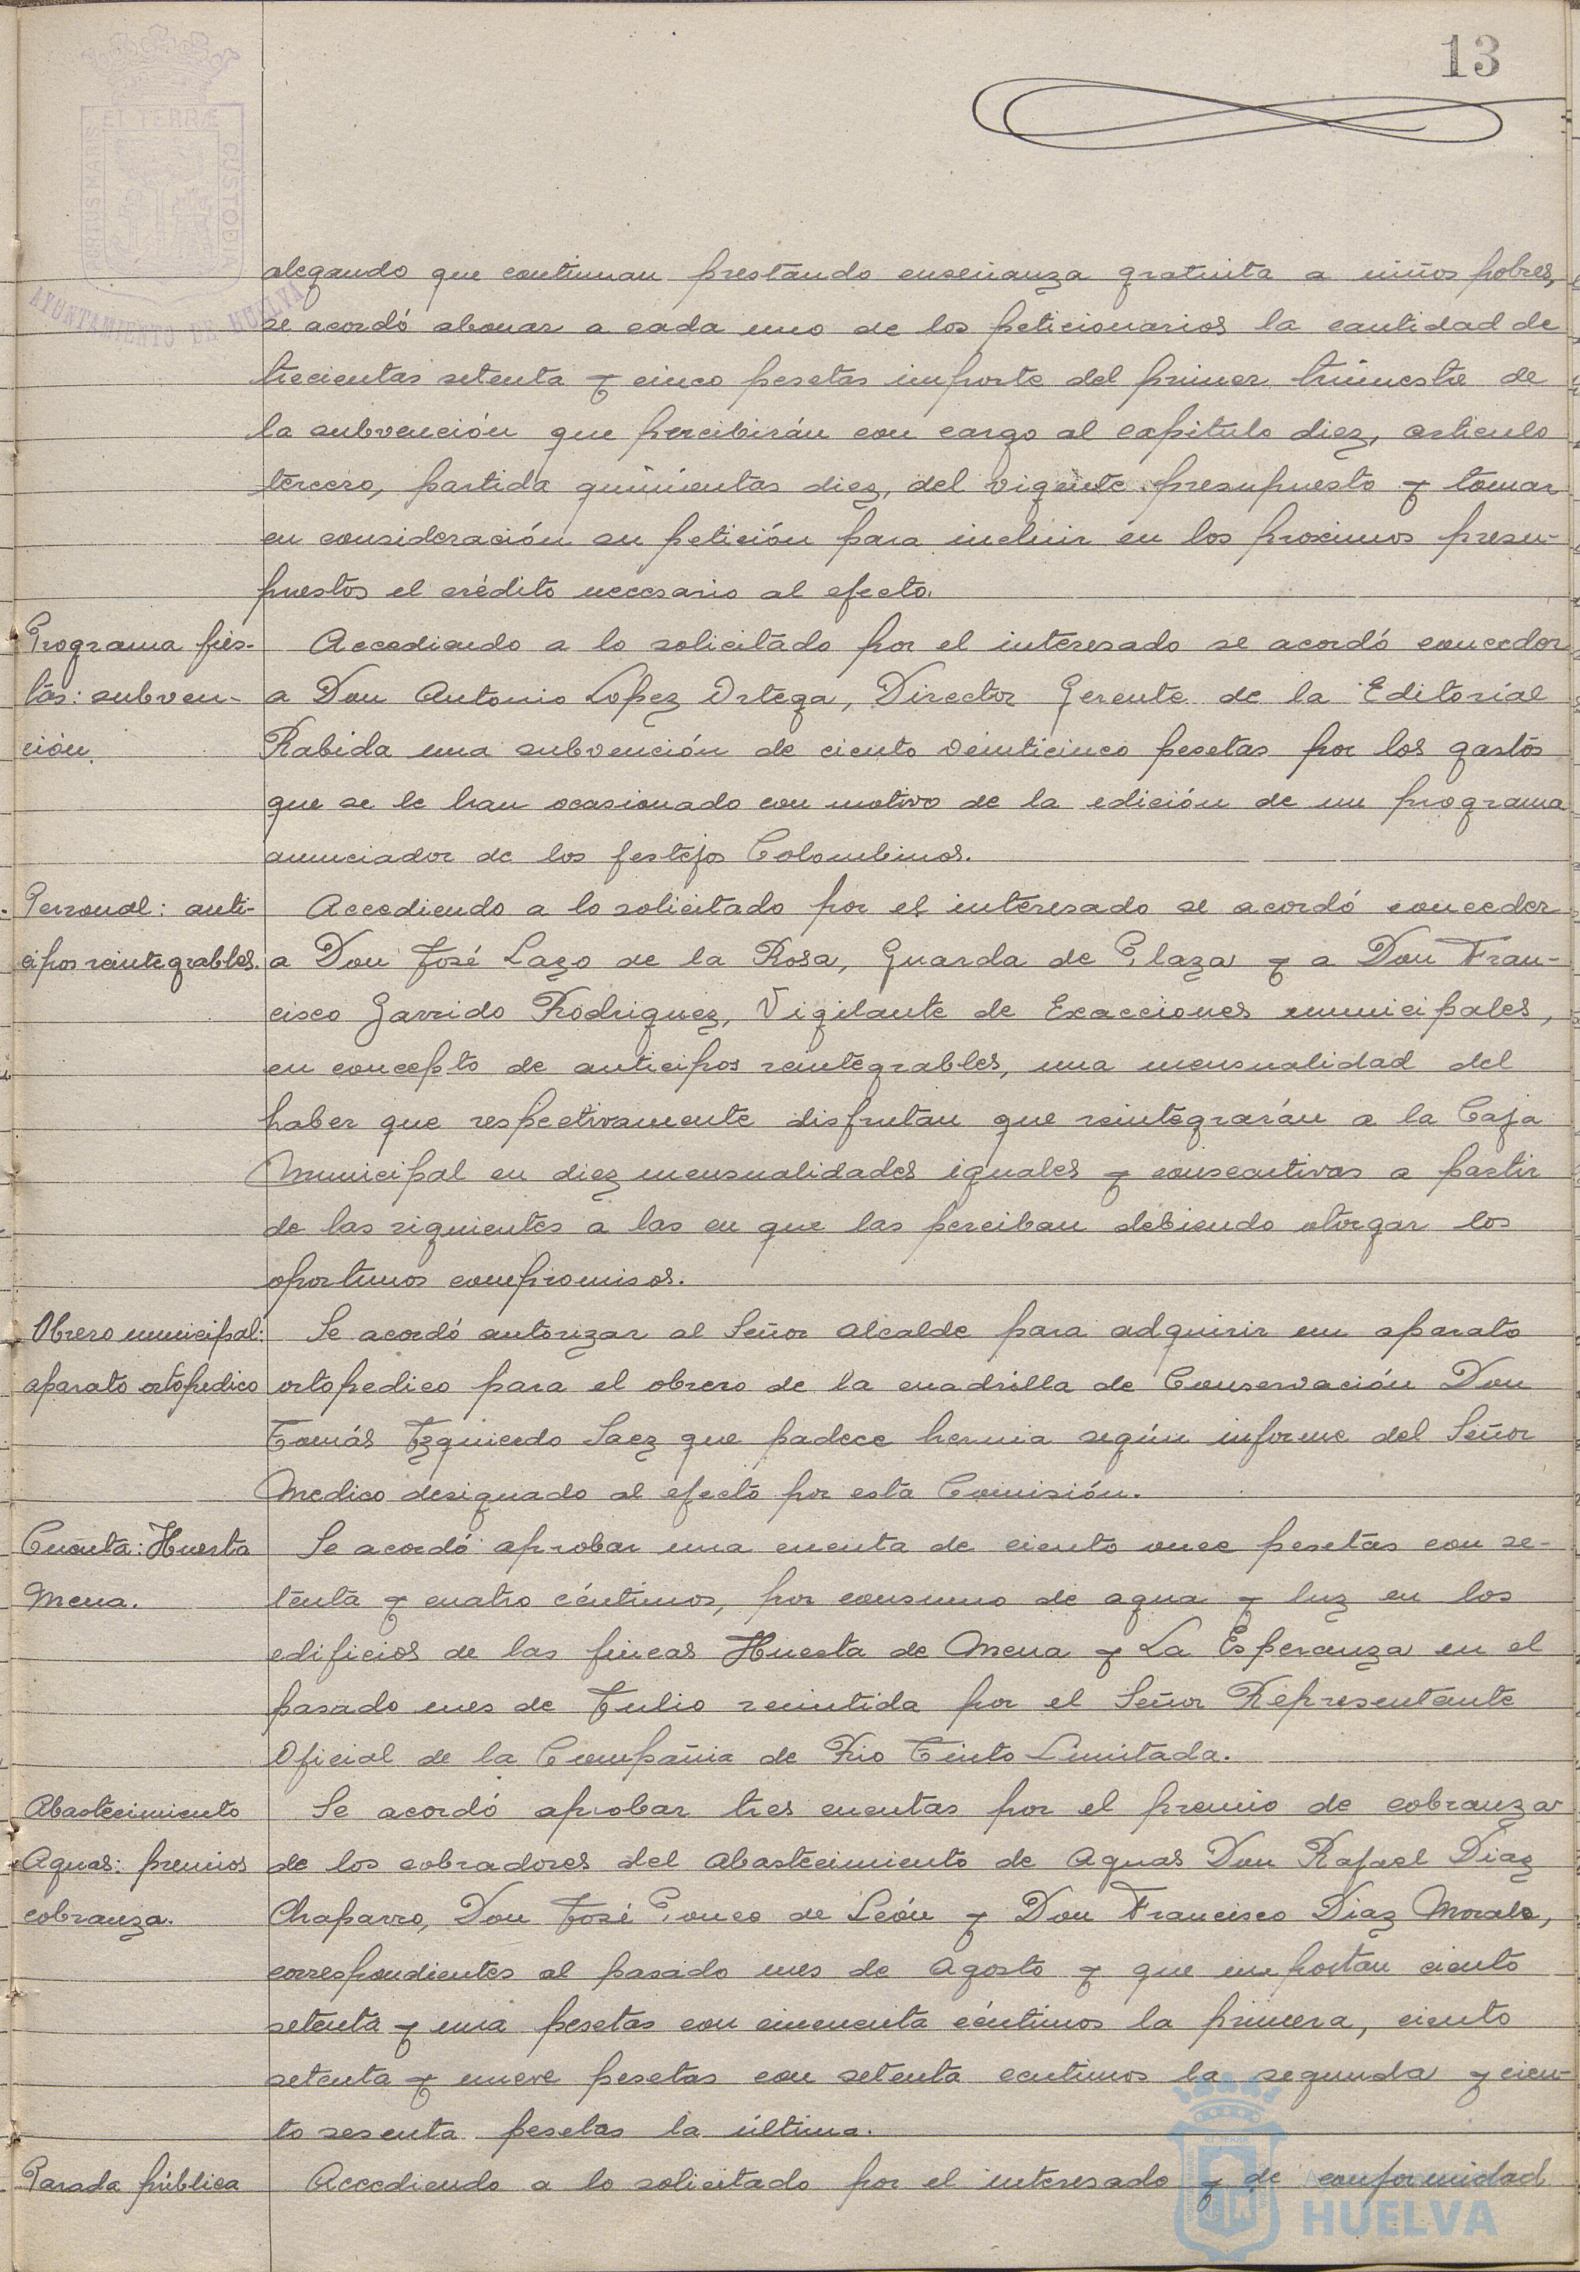 13
ET TERRÆ
PORTUS MARIS
CUSTODIA
AYUNTAMIENTO DE HUELVA
alegando que continuan prestando enseñanza gratuita a niños pobres,
se acordó abonar a cada uno de los peticionarios la cantidad de
trecientas setenta y cinco pesetas importe del primer trimestre de
la subvención que percibirán con cargo al capitulo diez, articulo
tercero, partida quinientas diez, del vigente presupuesto y tomar
en consideración su petición para incluir en los proximos presu-
puestos el crédito necesario al efecto.
Programa fies-
tas: subven-
ción.
Accediendo a lo solicitado por el interesado se acordó conceder
a Don Antonio Lopez Ortega, Director Gerente de la Editorial
Rabida una subvención de ciento veinticinco pesetas por los gastos
que se le han ocasionado con motivo de la edición de un programa
anunciador de los festejos Colombinos.
Personal: anti-
cipos reintegrables.
Accediendo a lo solicitado por el interesado se acordó conceder
a Don José Lazo de la Rosa, Guarda de Plaza y a Don Fran-
cisco Garrido Rodriguez, Vigilante de Exacciones municipales,
en concepto de anticipos reintegrables, una mensualidad del
haber que respectivamente disfrutan que reintegrarán a la Caja
Municipal en diez mensualidades iguales y consecutivas a partir
de las siguientes a las en que las perciban debiendo otorgar los
oportunos compromisos.
Obrero municipal:
aparato ortopedico
Se acordó autorizar al Señor Alcalde para adquirir un aparato
ortopedico para el obrero de la cuadrilla de Conservación Don
Tomás Izquierdo Saez que padece hernia según informe del Señor
Medico designado al efecto por esta Comisión.
Cuenta: Huerta
Mena.
Se acordó aprobar una cuenta de ciento once pesetas con se-
tenta y cuatro céntimos, por consumo de agua y luz en los
edificios de las fincas Huerta de Mena y La Esperanza en el
pasado mes de Julio remitida por el Señor Representante
Oficial de la Compañia de Rio Tinto Limitada.
Abastecimiento
Aguas: premios
cobranza.
Se acordó aprobar tres cuentas por el premio de cobranza
de los cobradores del Abastecimiento de Aguas Don Rafael Diaz
Chaparro, Don José Ponce de León y Don Francisco Diaz Morale,
correspondientes al pasado mes de Agosto y que importan ciento
setenta y una pesetas con cincuenta céntimos la primera, ciento
setenta y nueve pesetas con setenta centimos la segunda y cien-
to sesenta pesetas la última.
Parada pública
Accediendo a lo solicitado por el interesado y de conformidad
HUELVA